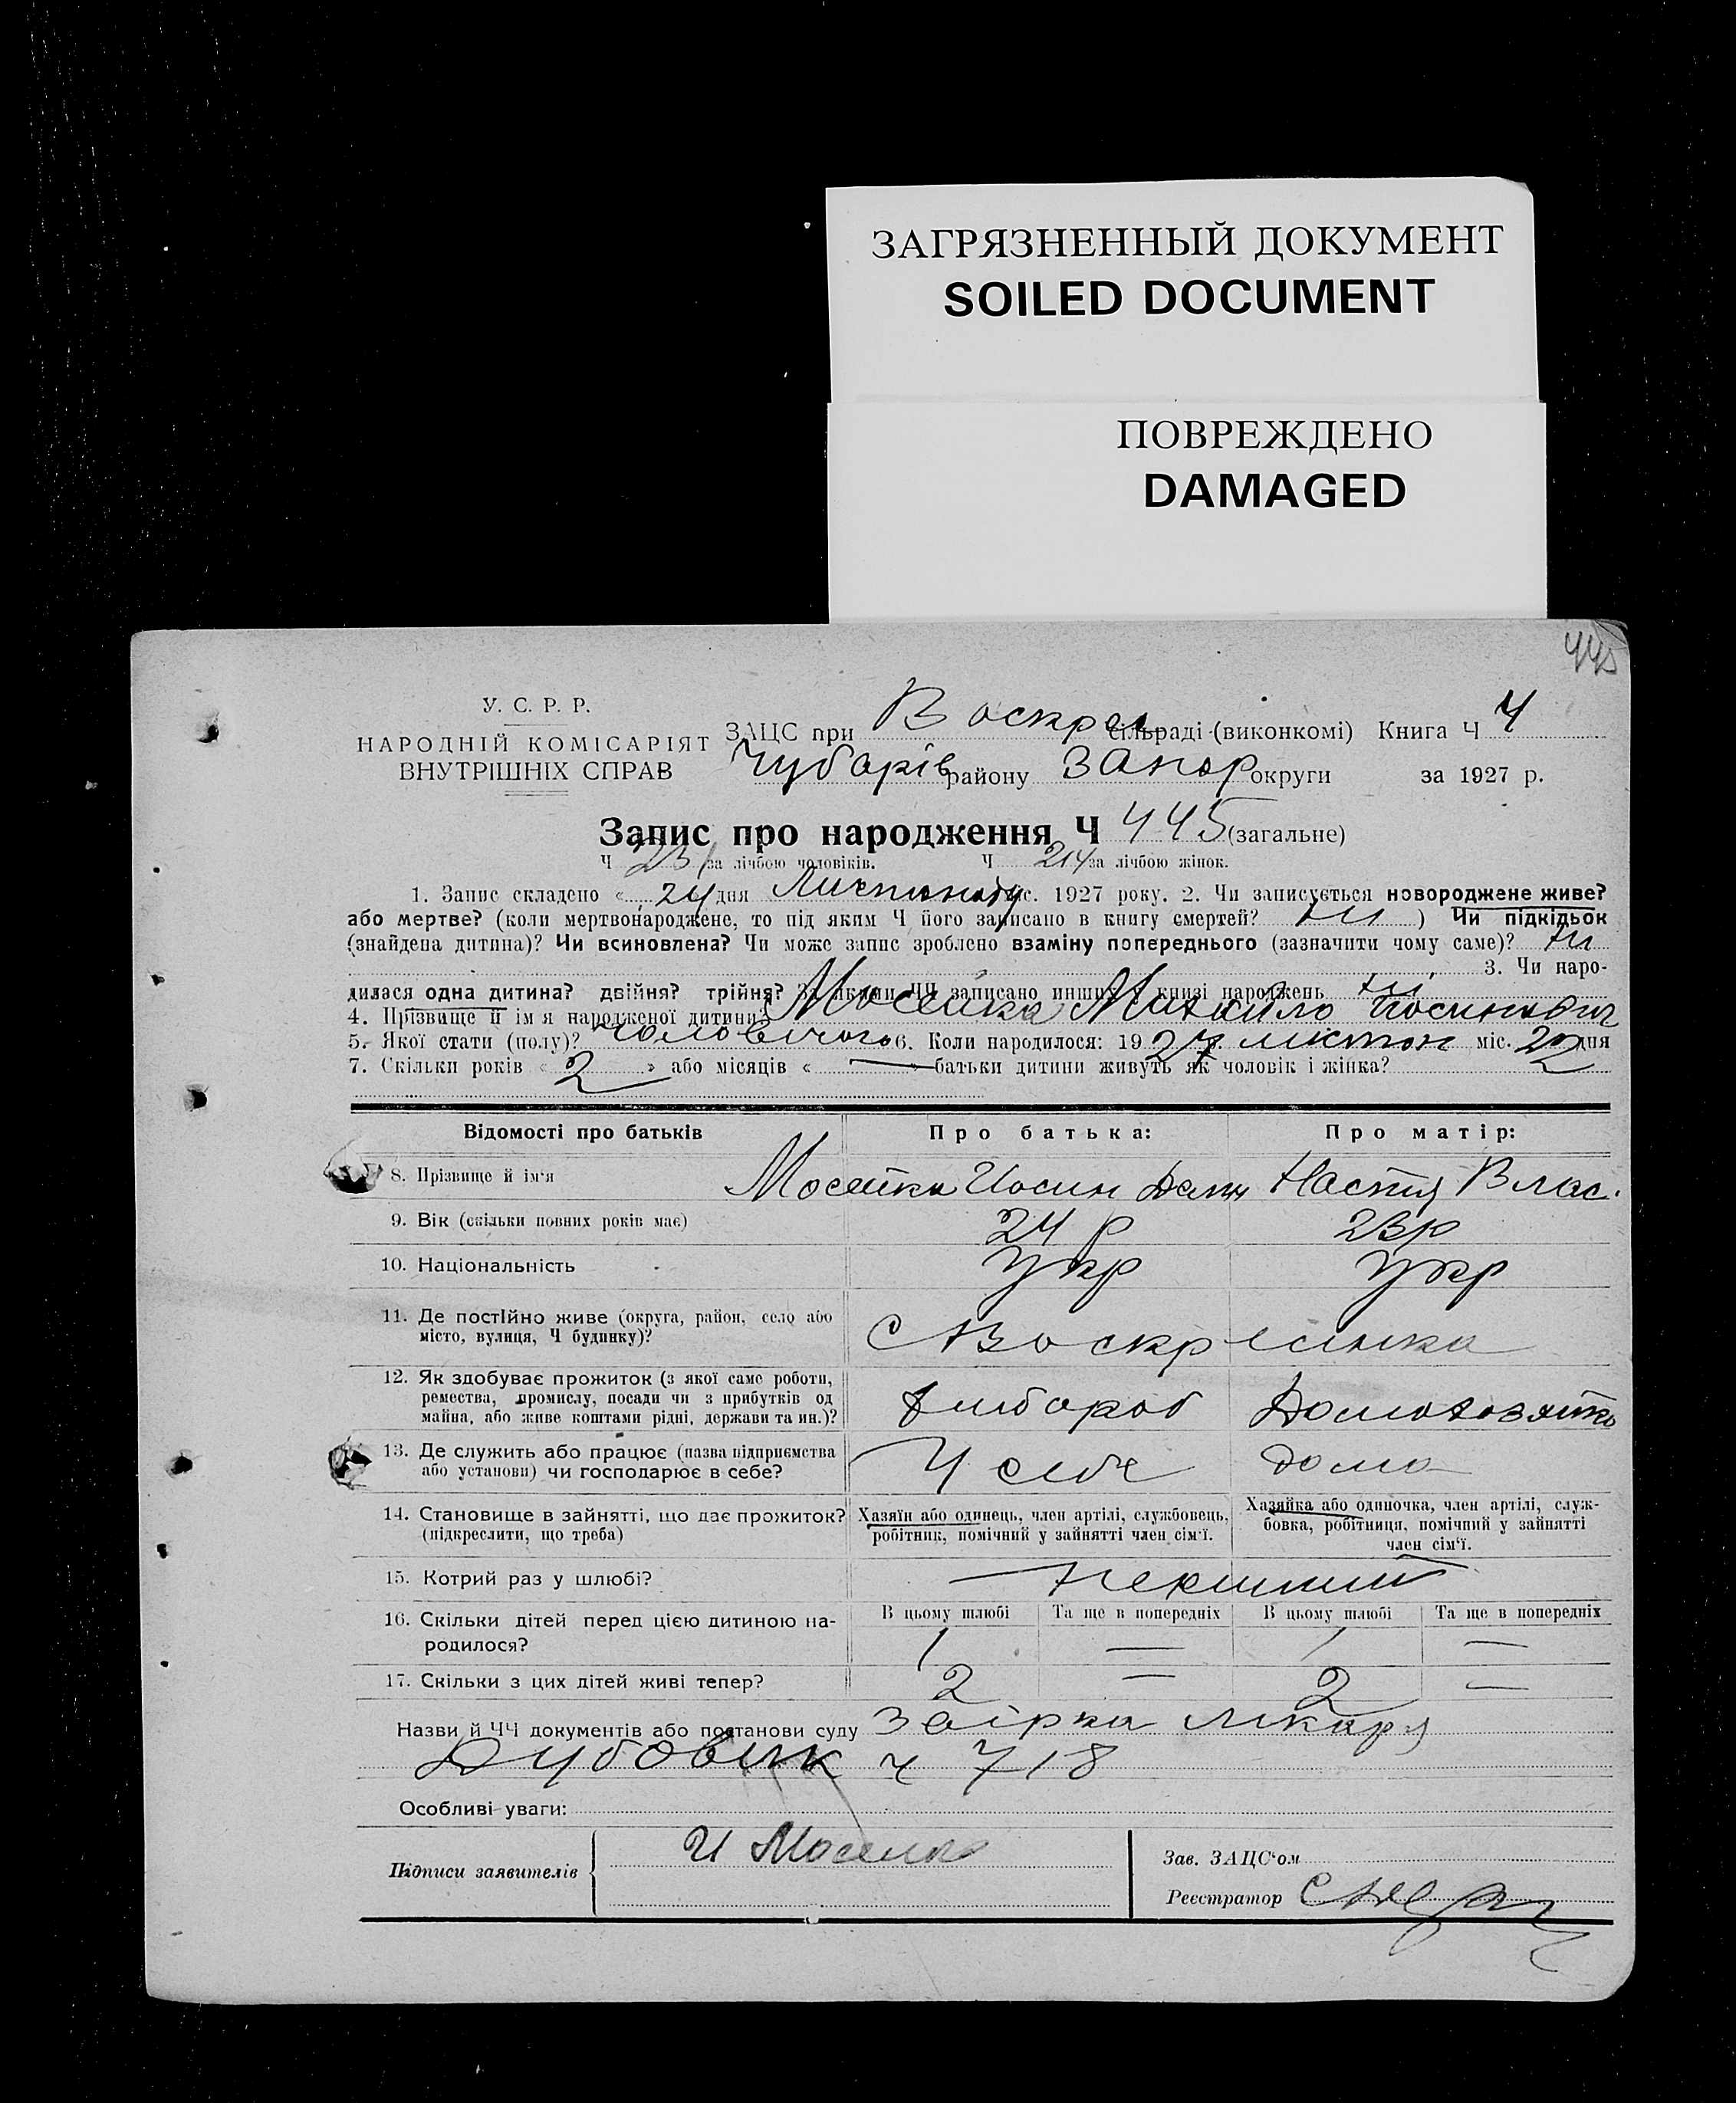 ЗАГРЯЗНЕННЫЙ ДОКУМЕНТ
SOILED DOCUMENT
ПОВРЕЖДЕНО
DAMAGED
445
У. С. Р. Р.
НАРОДНІЙ КОМІСАРІЯТ
ВНУТРІШНІХ СПРАВ
ЗАЦС при Воскрес сільраді (виконкомі) Книга Ч 4
Чубарів району Запор округи за 1927 р.
Запис про народження Ч 445 (загальне)
Ч 231 за лічбою чоловіків. Ч 214 за лічбою жінок.
1. Запис складено « 24 дня Листопаду міс. 1927 року. 2. Чи записується новороджене живе?
або мертве? (коли мертвонароджене, то під яким Ч його записано в книгу смертей? ні ) Чи підкідьок
(знайдена дитина)? Чи всиновлена? Чи може запис зроблено взаміну попереднього (зазначити чому саме)? ні
3. Чи наро-
дилася одна дитина? двійня? трійня? За якими ЧЧ записано инших у книзі народжень ні
4. Прізвище й ім'я народженої дитини? Мосейко Михайло Йосипович
5. Якої стати (полу)? чоловічого 6. Коли народилося: 1927 р. листоп міс. 22 дня
7. Скільки років « 2 » або місяців « — » батьки дитини живуть як чоловік і жінка?
Відомості про батьків Про батька: Про матір:
8. Прізвище й ім'я Мосейко Иосип Настя Влас.
9. Вік (скільки повних років має) 24 р 23 р
10. Національність Укр Укр
11. Де постійно живе (округа, район, село або
місто, вулиця, Ч будинку)? С Воскресинка
12. Як здобуває прожиток (з якої саме роботи,
ремества, промислу, посади чи з прибутків од
майна, або живе коштами рідні, держави та ин.)? хлібороб Домохозяйка
13. Де служить або працює (назва підприємства
або установи) чи господарює в себе? У себе дома
14. Становище в зайнятті, що дає прожиток?
(підкреслити, що треба)
Хазяїн або одинець, член артілі, службовець,
робітник, помічний у зайнятті член сім'ї.
Хазяйка або одиночка, член артілі, служ-
бовка, робітниця, помічний у зайнятті
член сім'ї.
15. Котрий раз у шлюбі? — перший
16. Скільки дітей перед цією дитиною на-
родилося?
В цьому шлюбі Та ще в попередніх В цьому шлюбі Та ще в попередніх
1 — 1 —
17. Скільки з цих дітей живі тепер? 2 — 2 —
Назви й ЧЧ документів або постанови суду Звірка лікаря
Дубовик ч 718
Особливі уваги:
Підписи заявителів И Мосейко
Зав. ЗАЦС'ом
Реєстратор